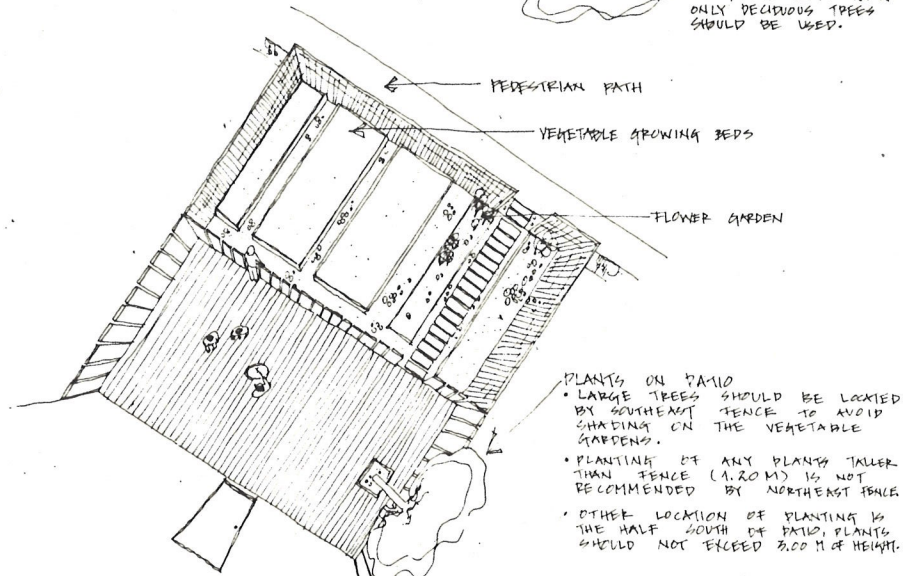 ONLY DECIDUOUS TREES
SHOULD BE USED.
PEDESTRIAN PATH
VEGETABLE GROWING BEDS
FLOWER GARDEN
PLANTS ON PATIO
• LARGE TREES SHOULD BE LOCATED
BY SOUTHEAST FENCE TO AVOID
SHADING ON THE VEGETABLE
GARDENS.
• PLANTING OF ANY PLANTS TALLER
THAN FENCE (1.20 M) IS NOT
RECOMMENDED BY NORTHEAST FENCE
• OTHER LOCATION OF PLANTING IS
THE HALF SOUTH OF PATIO, PLANTS
SHOULD NOT EXCEED 3.00 M OF HEIGHT.